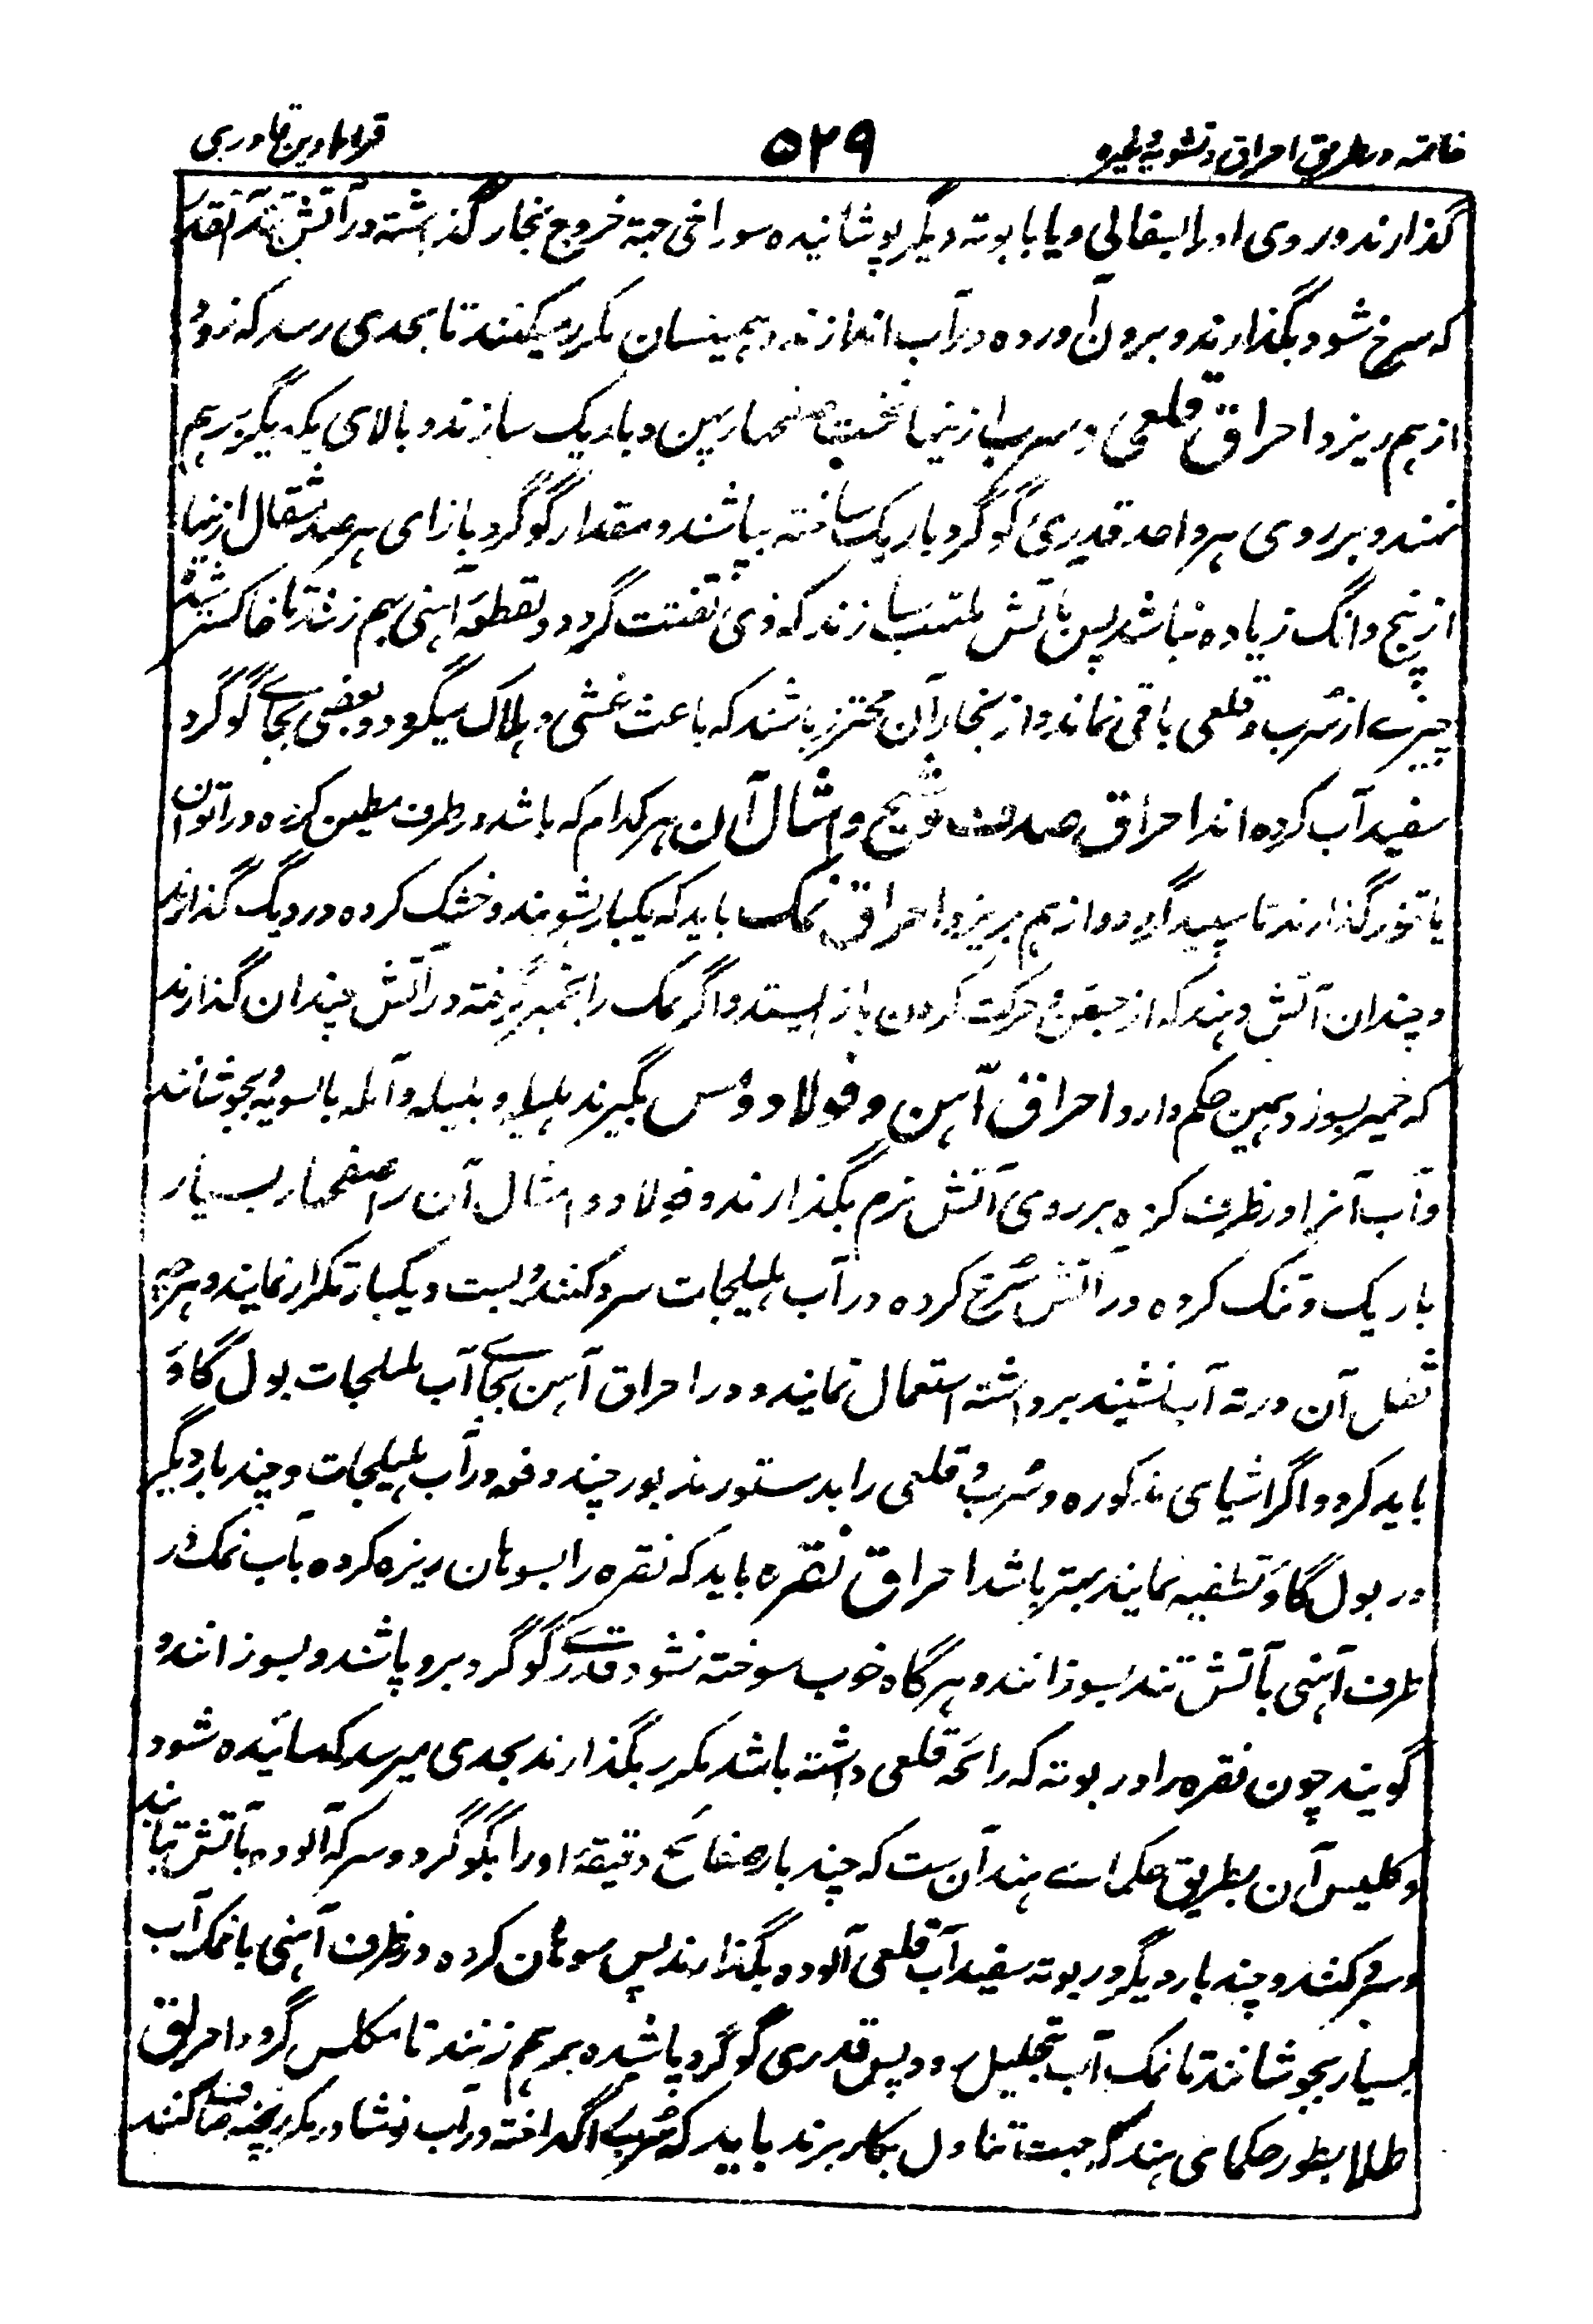 خاتمه در طریق احراق و تشویه وغیره ۵۲۹ قرابادین قادری
گذارند و بر روی او را بسفالی و یا با بوته دیگر پوشانیده سوراخی جهة خروج بخار گذاشته در آتش تند آنقدر
که سرخ شود بگذارند و برون آورده در آب اندازند و همینسان مکرر میکنند تا بحدی رسد که زود
از هم ریزد احراق قلعی و سرب ازینها نخست صفحهار پهن و باریک سازند و بالای یکدیگر برهم
نهند و بر روی هر واحد قدری گوگرد باریک ساخته بپاشند و مقدار گوگرد بازای هر صد مثقال ازینها
از پنج دانگ زیاده نباشد پس بآتش ملتهب سازند که ذی تفتت گردد و بقطعه آهنی بهم زنند تا خاکستر شد
چیزے از سرب و قلعی باقی نماند و از بخار آن محترز باشند که باعث غشی و هلاک میگردد و بعضی بجاے گوگرد
سفید آب کرده اند احراق صدف و شیح و امثال آن هر کدام که باشد در ظرف مطین کرده در آتون
یا تنور گذارند تا سپید گردد و از هم بریزد احراق نمک باید که یکبار بشویند و خشک کرده در دیگ گذارند
و چندان آتش دهند که از جستن و حرکت کردن باز ایستد و اگر نمک را بخمیر گرفته در آتش چندان گذارند
که خمیر بسوزد همین حکم دارد احراق آهن و فولاد و مس بگیرند هلیله و بلیله و آمله بالسویه بجوشانند
و آب آنرا در ظرف کرده بر روی آتش نرم بگذارند و فولاد و امثال آن را صفحهار بسیار
باریک و تنک کرده در آتش سرخ کرده در آب هلیلجات سرد کنند و بست و یکبار تکرار نمایند و هرچه
ثفل آن در ته آب نشیند برداشته استعمال نمایند و در احراق آهن بجاے آب هلیلجات بول گاؤ
باید کرد و اگر اشیای مذکوره و سرب و قلعی را بدستور مذبور چند دفعه در آب هلیلجات و چند بار دیگر
در بول گاؤ تشفیه نمایند بهتر باشد احراق نقره باید که نقره را بسوهان ریزه کرده بآب نمک در
ظرف آهنی بآتش تند بسوزانند و هرگاه خوب سوخته نشود قدرے گوگرد برو پاشند و بسوزانند و
گویند چون نقره را در بوته که رائحه قلعی داشته باشد مکرر بگذارند بحدی میرسد که سائیده شود
و کلیس آن بطریق حکماے هند آن ست که چند بار صفائح دقیقه او را بگوگرد و سرکه آلوده بآتش تابند
و سرد کنند و چند بار دیگر در بوته سفید آب قلعی آلوده بگذارند پس سوهان کرده در ظرف آهنی با نمک آب
بسیار بجوشانند تا نمک آب بتحلیل رود پس قدری گوگرد پاشیده برهم زنند تا مکلس گردد احراق
طلا بطور حکمای هند که جهت تناول بکار برند باید که سرب را گداخته در آب نوشادر مکرر ریخته صاف کنند